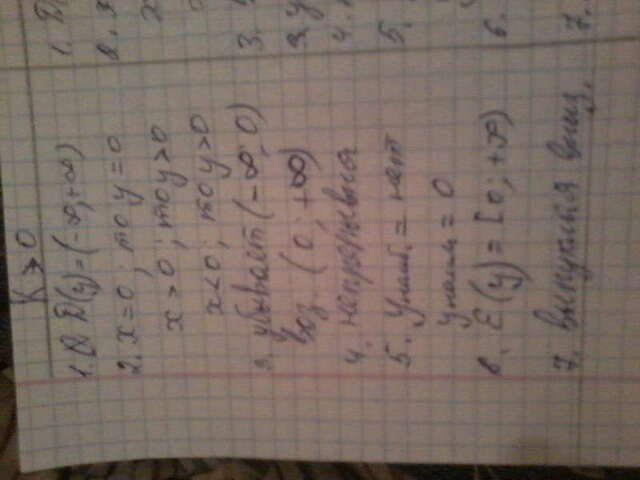 K > 0
1. D(y) = (-∞; +∞)
2. x = 0; то y = 0
x > 0; то y > 0
x < 0; то y > 0
3. убывает (-∞; 0)
воз (0; +∞)
4. непрерывна
5. yнаиб. = нет
yнаим = 0
6. E(y) = [0; +∞)
7. выпукла вниз.
1.
2.
3.
4.
5.
6.
7.